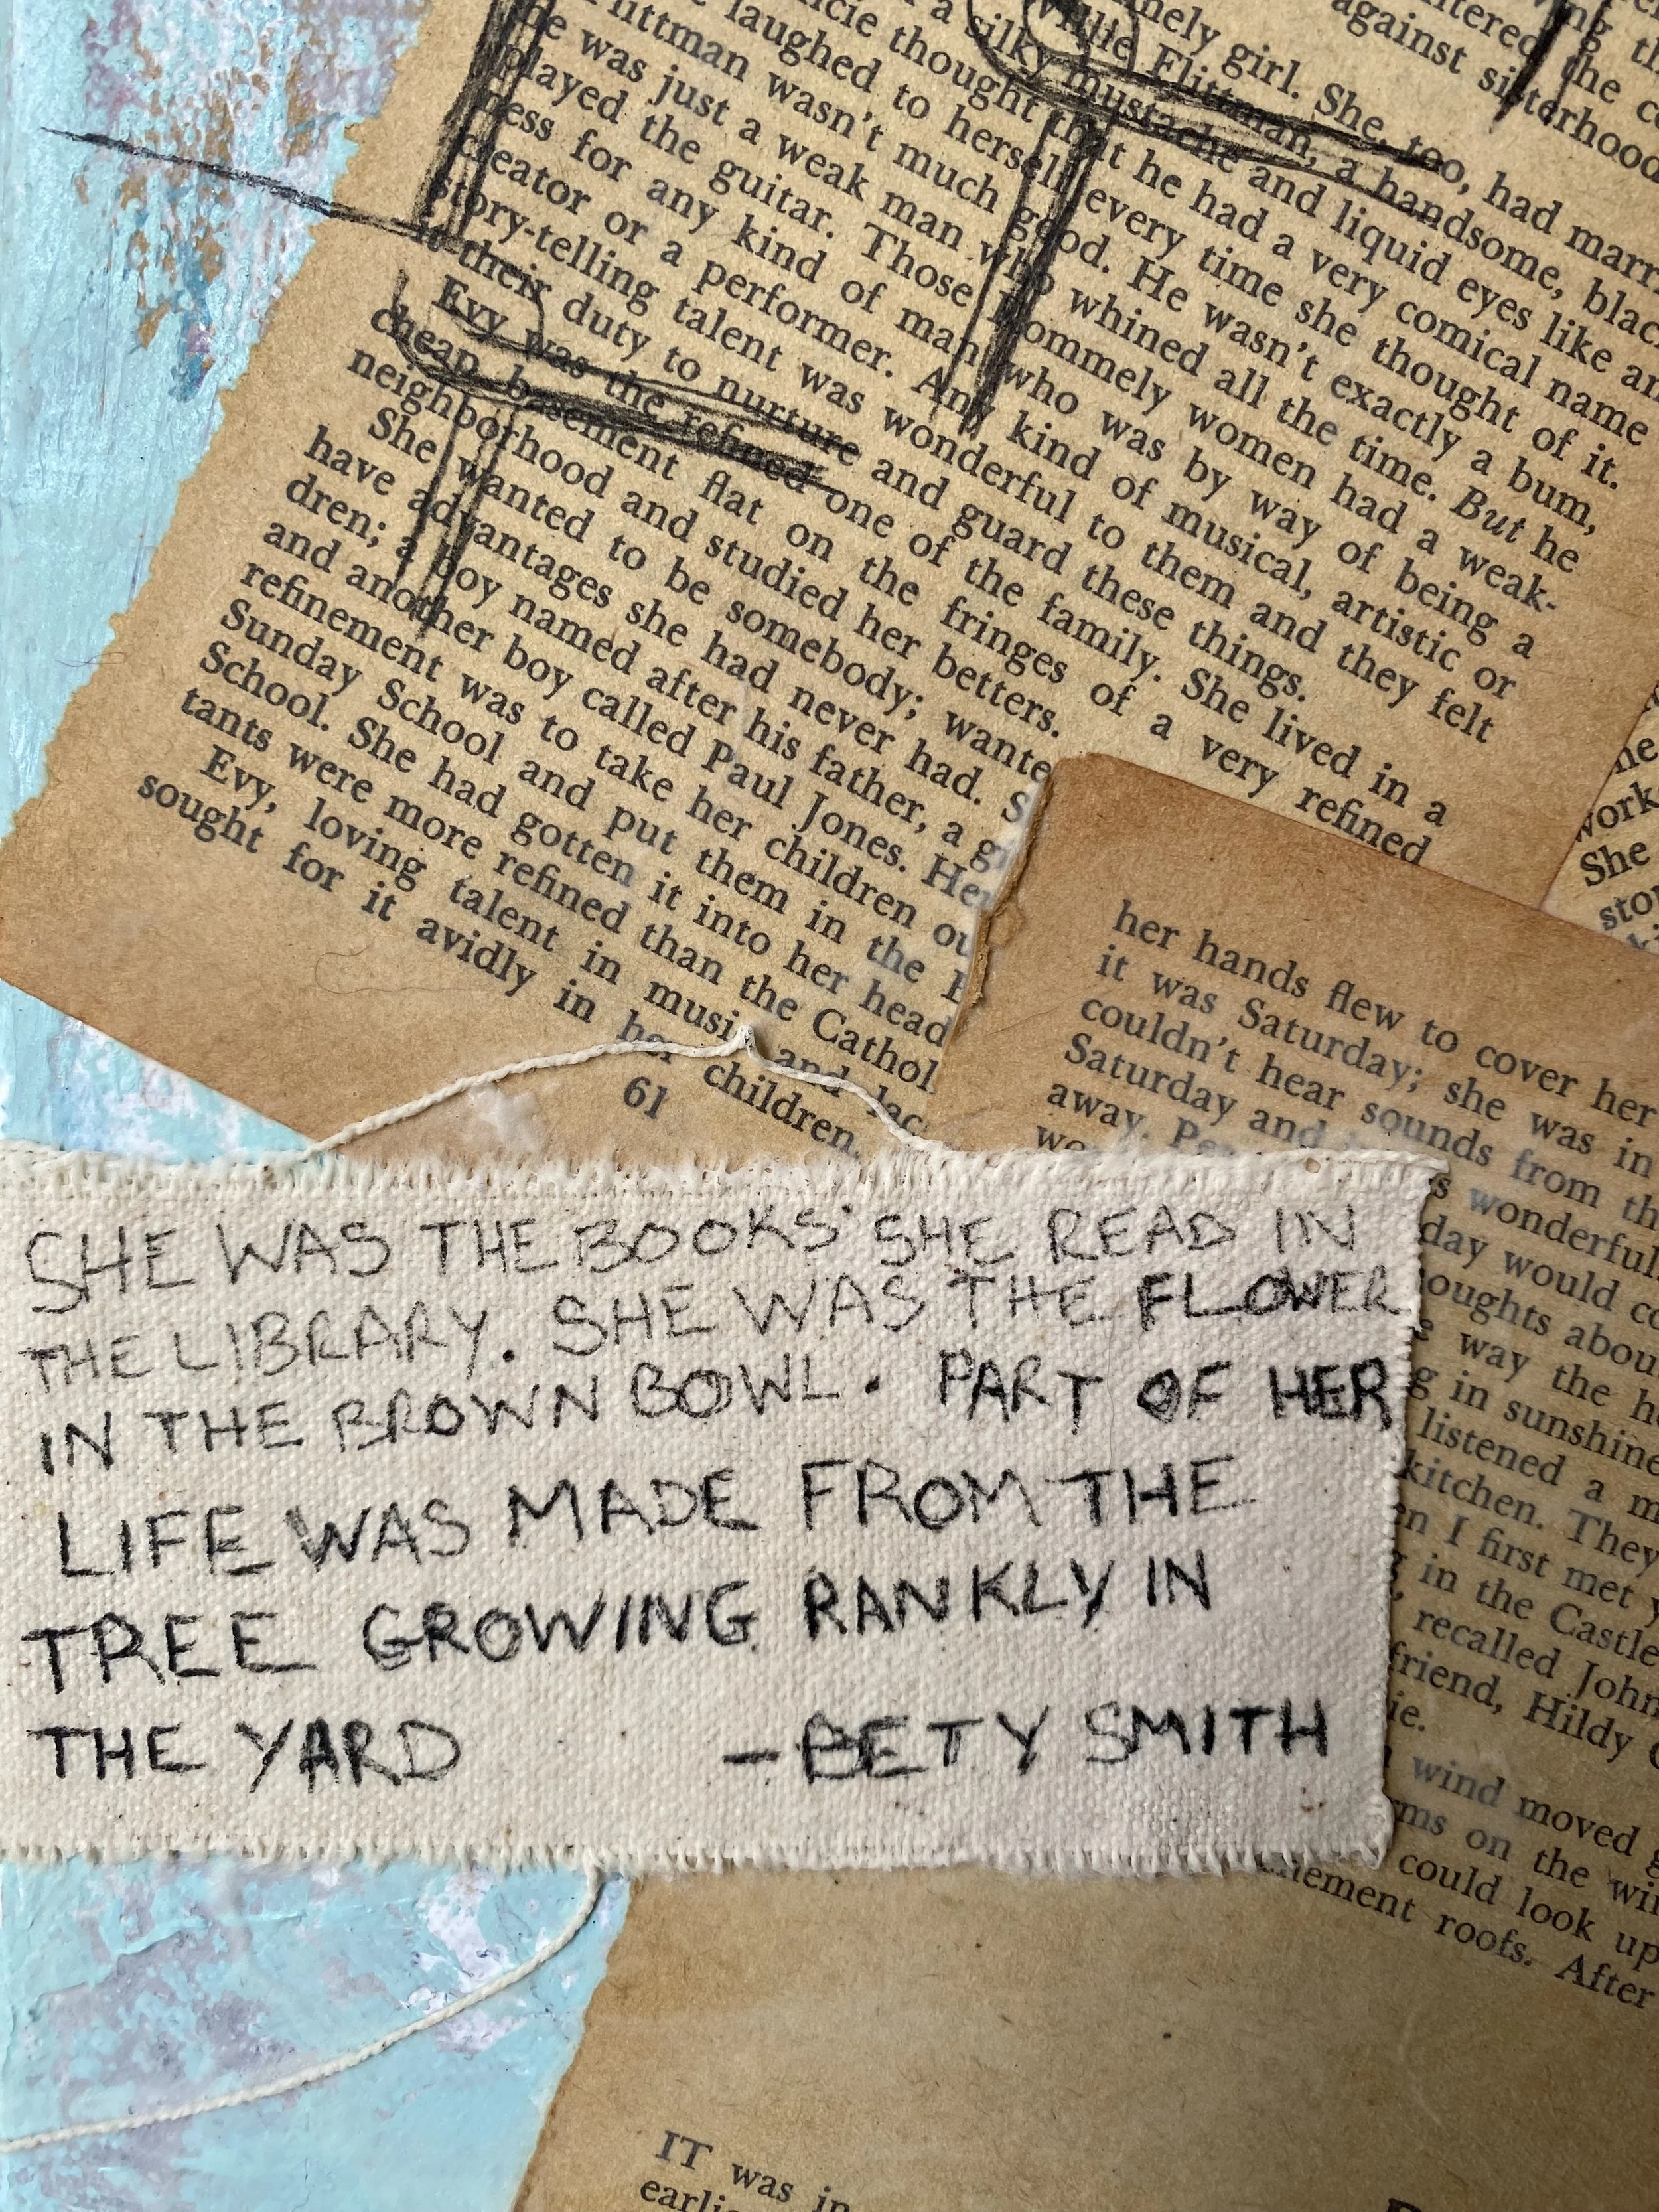 against sisterhood
girl. She, too, had
Willie Flittman, a handsome,
a silky mustache and liquid eyes like
thought that he had a very comical name
laughed to herself every time she thought of it.
Flittman wasn't much good. He wasn't exactly a bum,
he was just a weak man who whined all the time. But he
played the guitar. Those Rommely women had a weak-
ness for any kind of man who was by way of being a
creator or a performer. Any kind of musical, artistic or
story-telling talent was wonderful to them and they felt
it their duty to nurture and guard these things.
Evy was the refined one of the family. She lived in a
cheap basement flat on the fringes of a very refined
neighborhood and studied her betters.
She wanted to be somebody; wante
have advantages she had never had. S
dren; a boy named after his father, a
and another boy called Paul Jones. Her
refinement was to take her children ou
Sunday School and put them in the
School. She had gotten it into her head
tants were more refined than the Cathol
Evy, loving talent in music and lac
sought for it avidly in her children.
61
work
She
her hands flew to cover her
it was Saturday; she was in
couldn't hear sounds from th
Saturday and
away.
wonderful
day would
oughts abou
way the
in sunshine
listened a
kitchen. They
I first met
in the Castle
recalled John
friend, Hildy
wind moved
on the
could look up
roofs. After
SHE WAS THE BOOKS SHE READ IN
THE LIBRARY. SHE WAS THE FLOWER
IN THE BROWN BOWL. PART OF HER
LIFE WAS MADE FROM THE
TREE GROWING RANKLY IN
THE YARD -BETY SMITH
IT was in